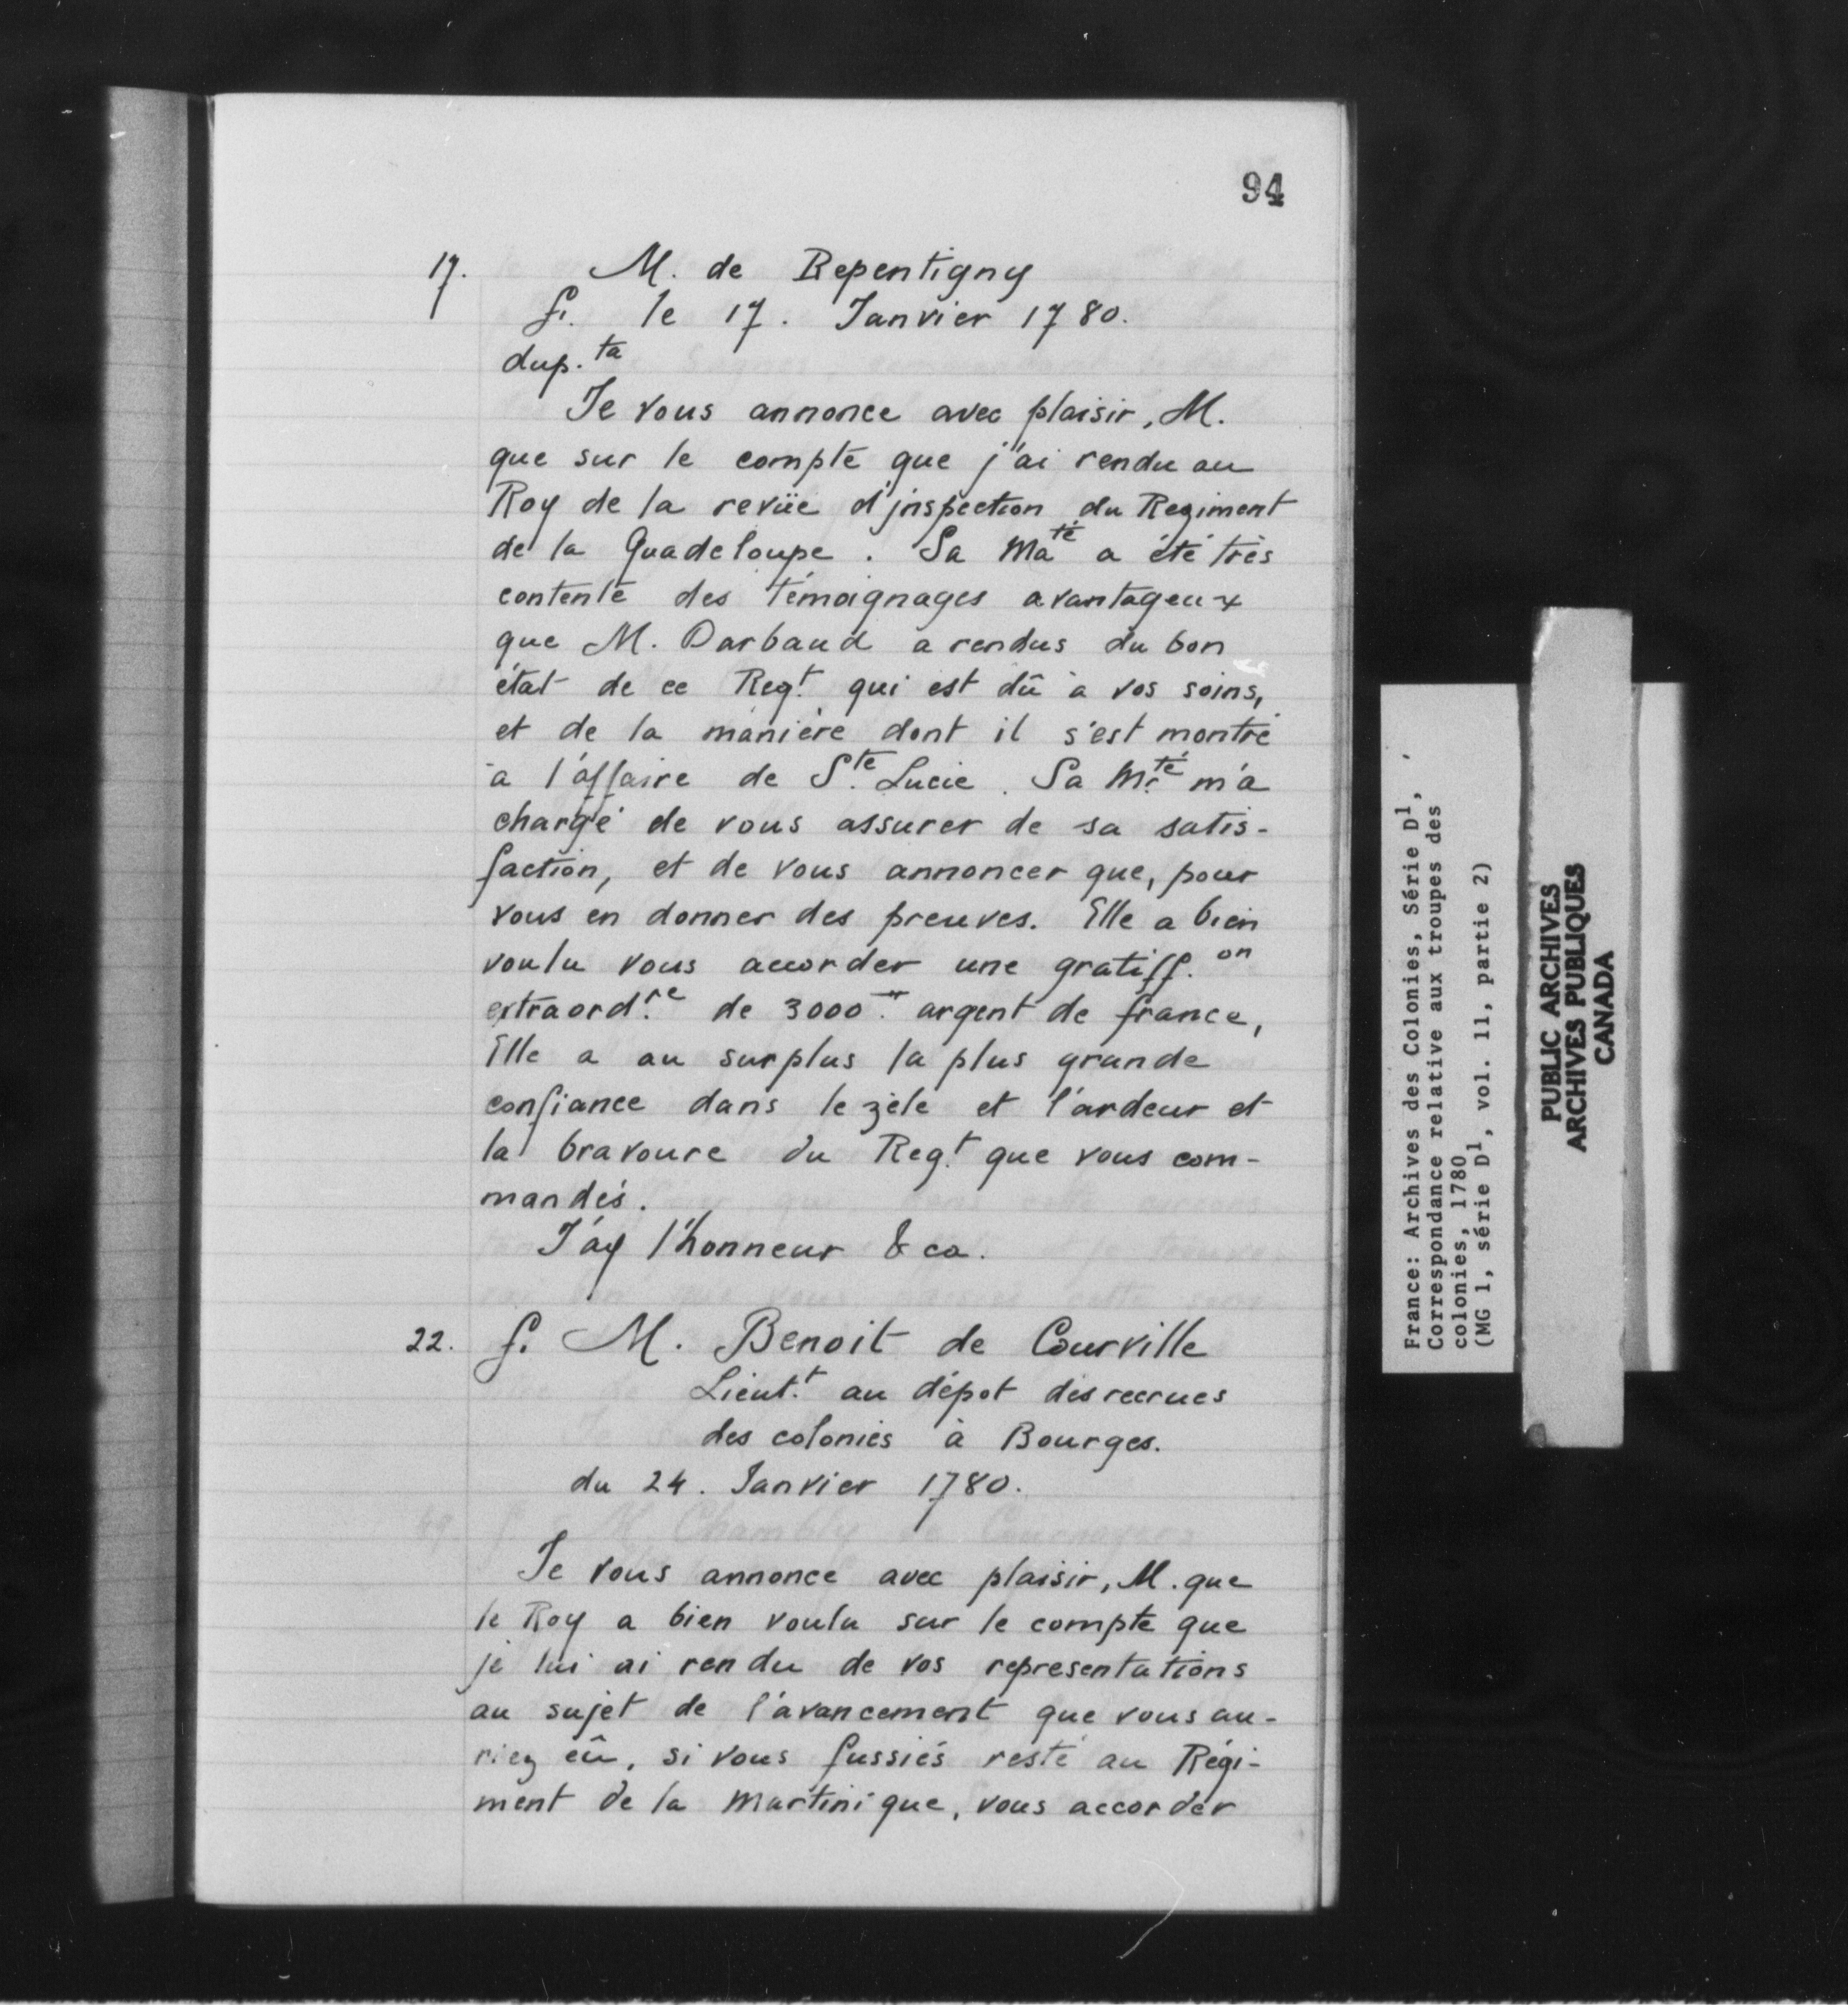 94
17. M. de Repentigny
f. le 17. Janvier 1780.
dup.ta
Je vous annonce avec plaisir, M.
que sur le compte que j'ai rendu au
Roy de la revüe d'jnspection du Regiment
de la Guadeloupe. Sa Maté a été très
contente des témoignages avantageux
que M. Darbaud a rendus du bon
état de ce Regt. qui est dû à vos soins,
et de la manière dont il s'est montré
à l'affaire de Ste. Lucie. Sa Mté. m'a
chargé de vous assurer de sa satis-
faction, et de vous annoncer que, pour
vous en donner des preuves. Elle a bien
voulu vous accorder une gratiff.on
extraord.re de 3000tt. argent de france,
Elle a au surplus la plus grande
confiance dans le zèle et l'ardeur et
la bravoure du Regt. que vous com-
mandés.
J'ay l'honneur & ca.
22. f. M. Benoit de Courville
Lieut.t au dépot des recrues
des colonies à Bourges.
du 24. Janvier 1780.
Je vous annonce avec plaisir, M. que
le Roy a bien voulu sur le compte que
je lui ai rendu de vos representations
au sujet de l'avancement que vous au-
riez eû, si vous fussiés resté au Régi-
ment de la Martinique, vous accorder
France: Archives des Colonies, Série D1,
Correspondance relative aux troupes des
colonies, 1780
(MG 1, série D1, vol. 11, partie 2)
PUBLIC ARCHIVES
ARCHIVES PUBLIQUES
CANADA